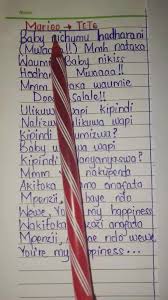 Marioo → TETE
Baby nichumu hadharani
(Mwaaa!!) Mmh nataka
Waumie Baby nikiss
Hadhar Mwaaa!!
Mmm taka waumie
Dood Salale!!
Ulikuwa wapi kipindi
Naliz likuwa wapi
Kipindi umizwa?
Baby kuwa wapi
Kipindi nyanyaswa?
Mmm nakupenda
Akitoka mmo anafata
Mpenzi, baye ndo
Wewe, You my happiness
Wakitoka wazazi anafata
Mpenzi, ye ndo wewe
You're my happiness...